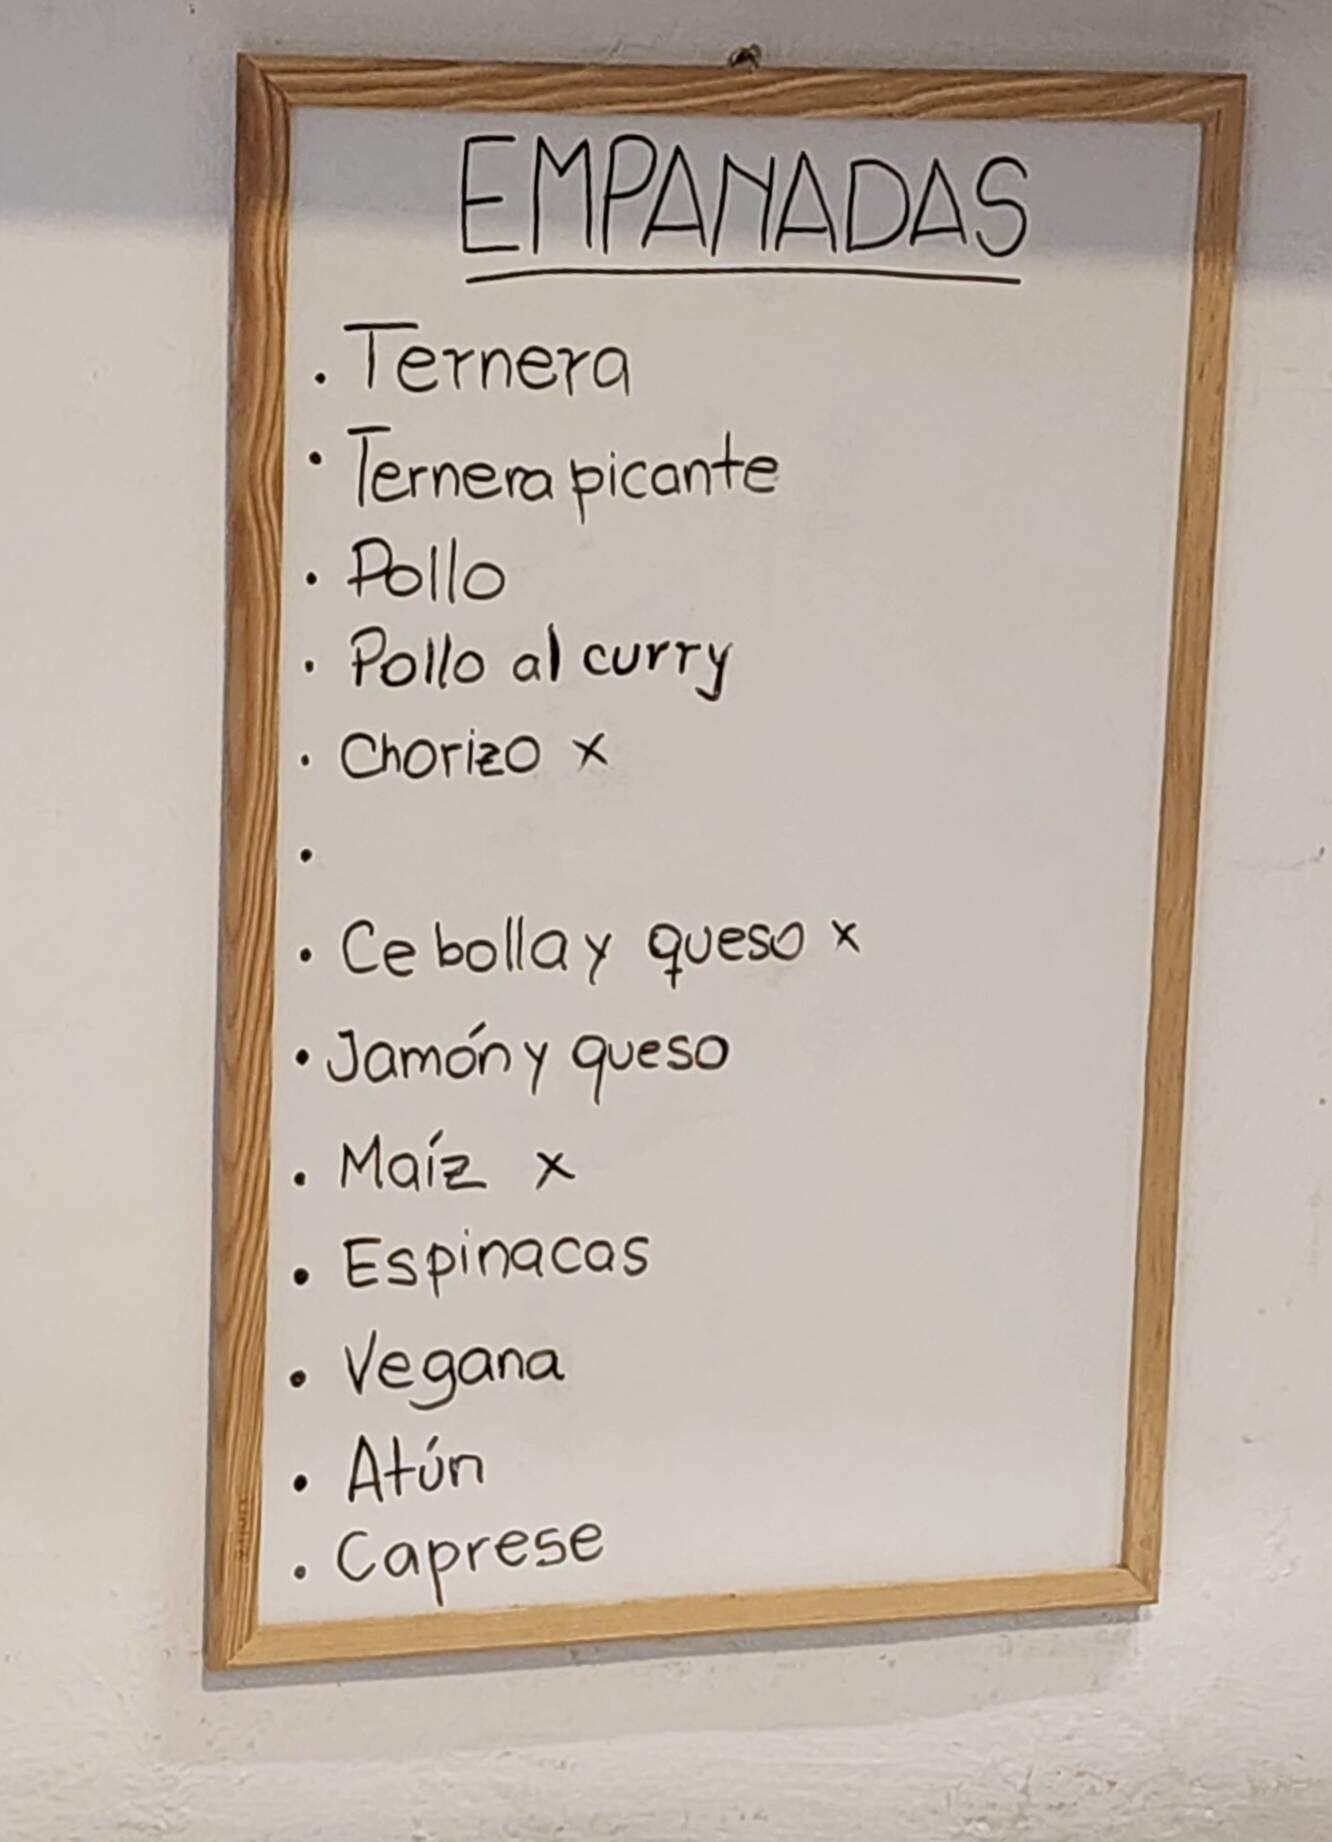 EMPANADAS
. Ternera
· Ternera picante
. Pollo
. Pollo al curry
. Chorizo x
.
. Cebolla y queso x
• Jamón y queso
. Maíz x
• Espinacas
• Vegana
• Atún
. Caprese